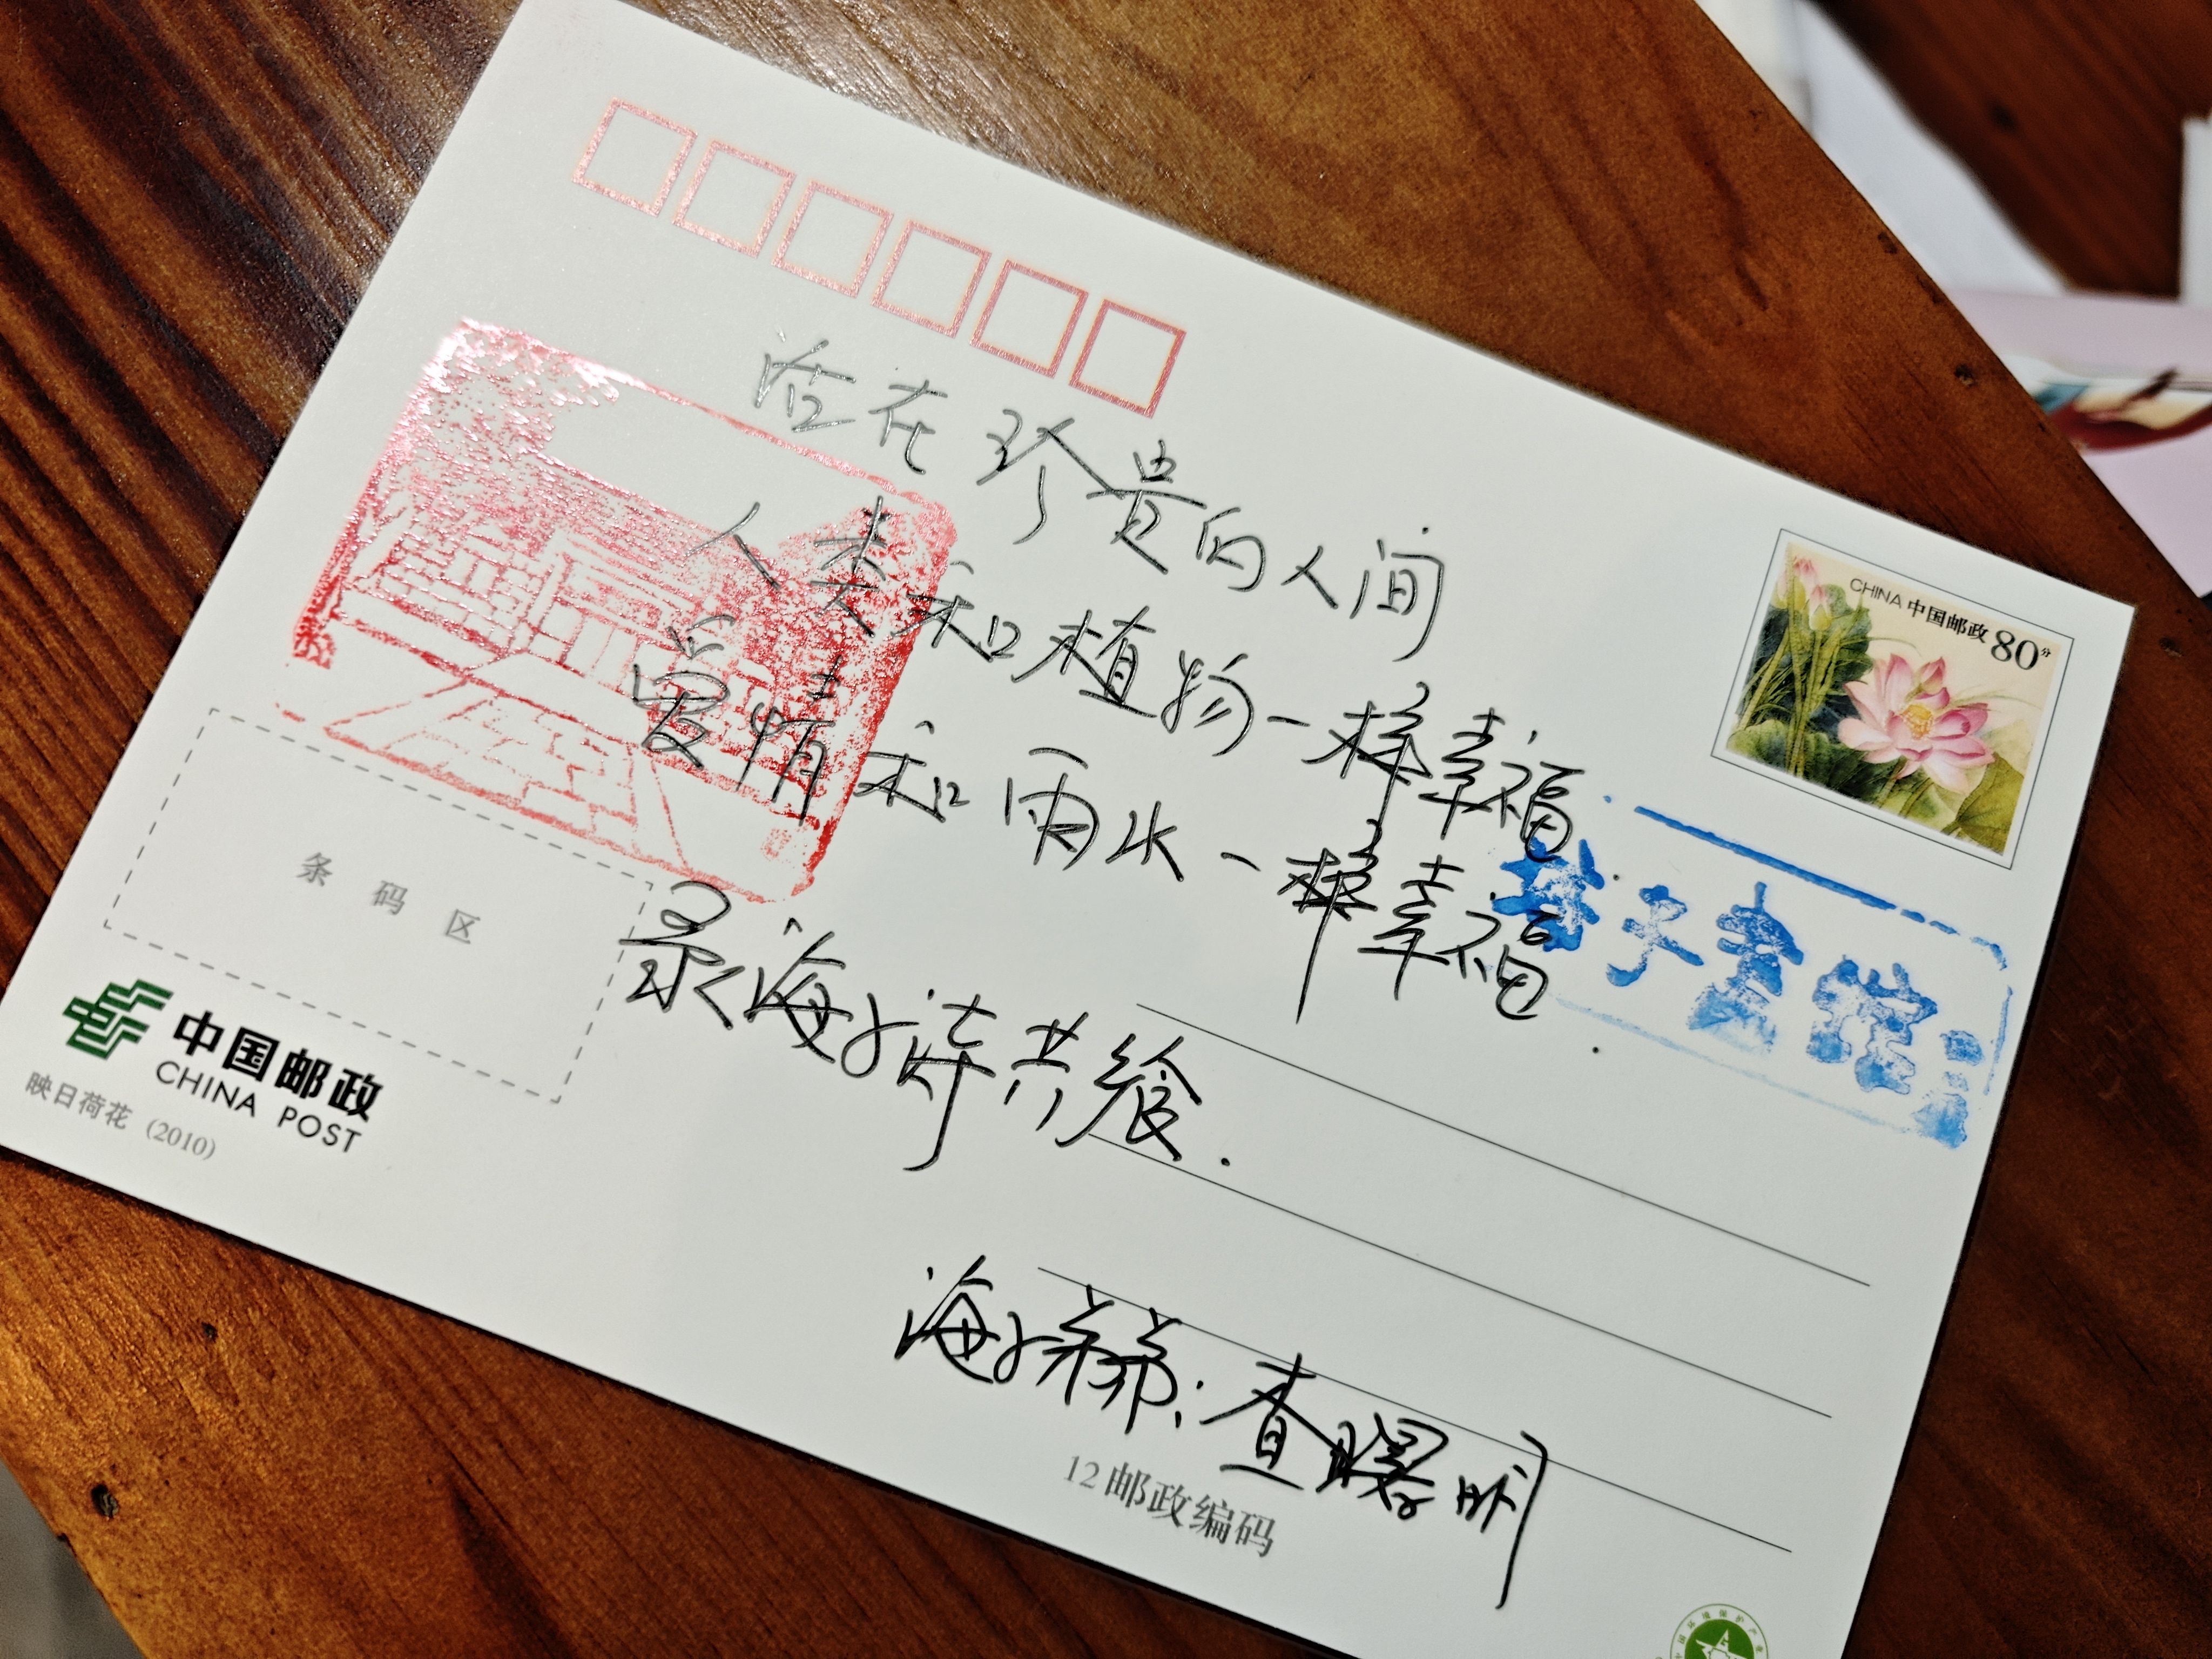 活在珍贵的人间
人类和植物一样幸福
爱情和雨水一样幸福.
录海子诗共飨.
海子弟弟: 查曙明
CHINA 中国邮政 80分
子書館
条码区
中国邮政
CHINA POST
映日荷花 (2010)
12 邮政编码